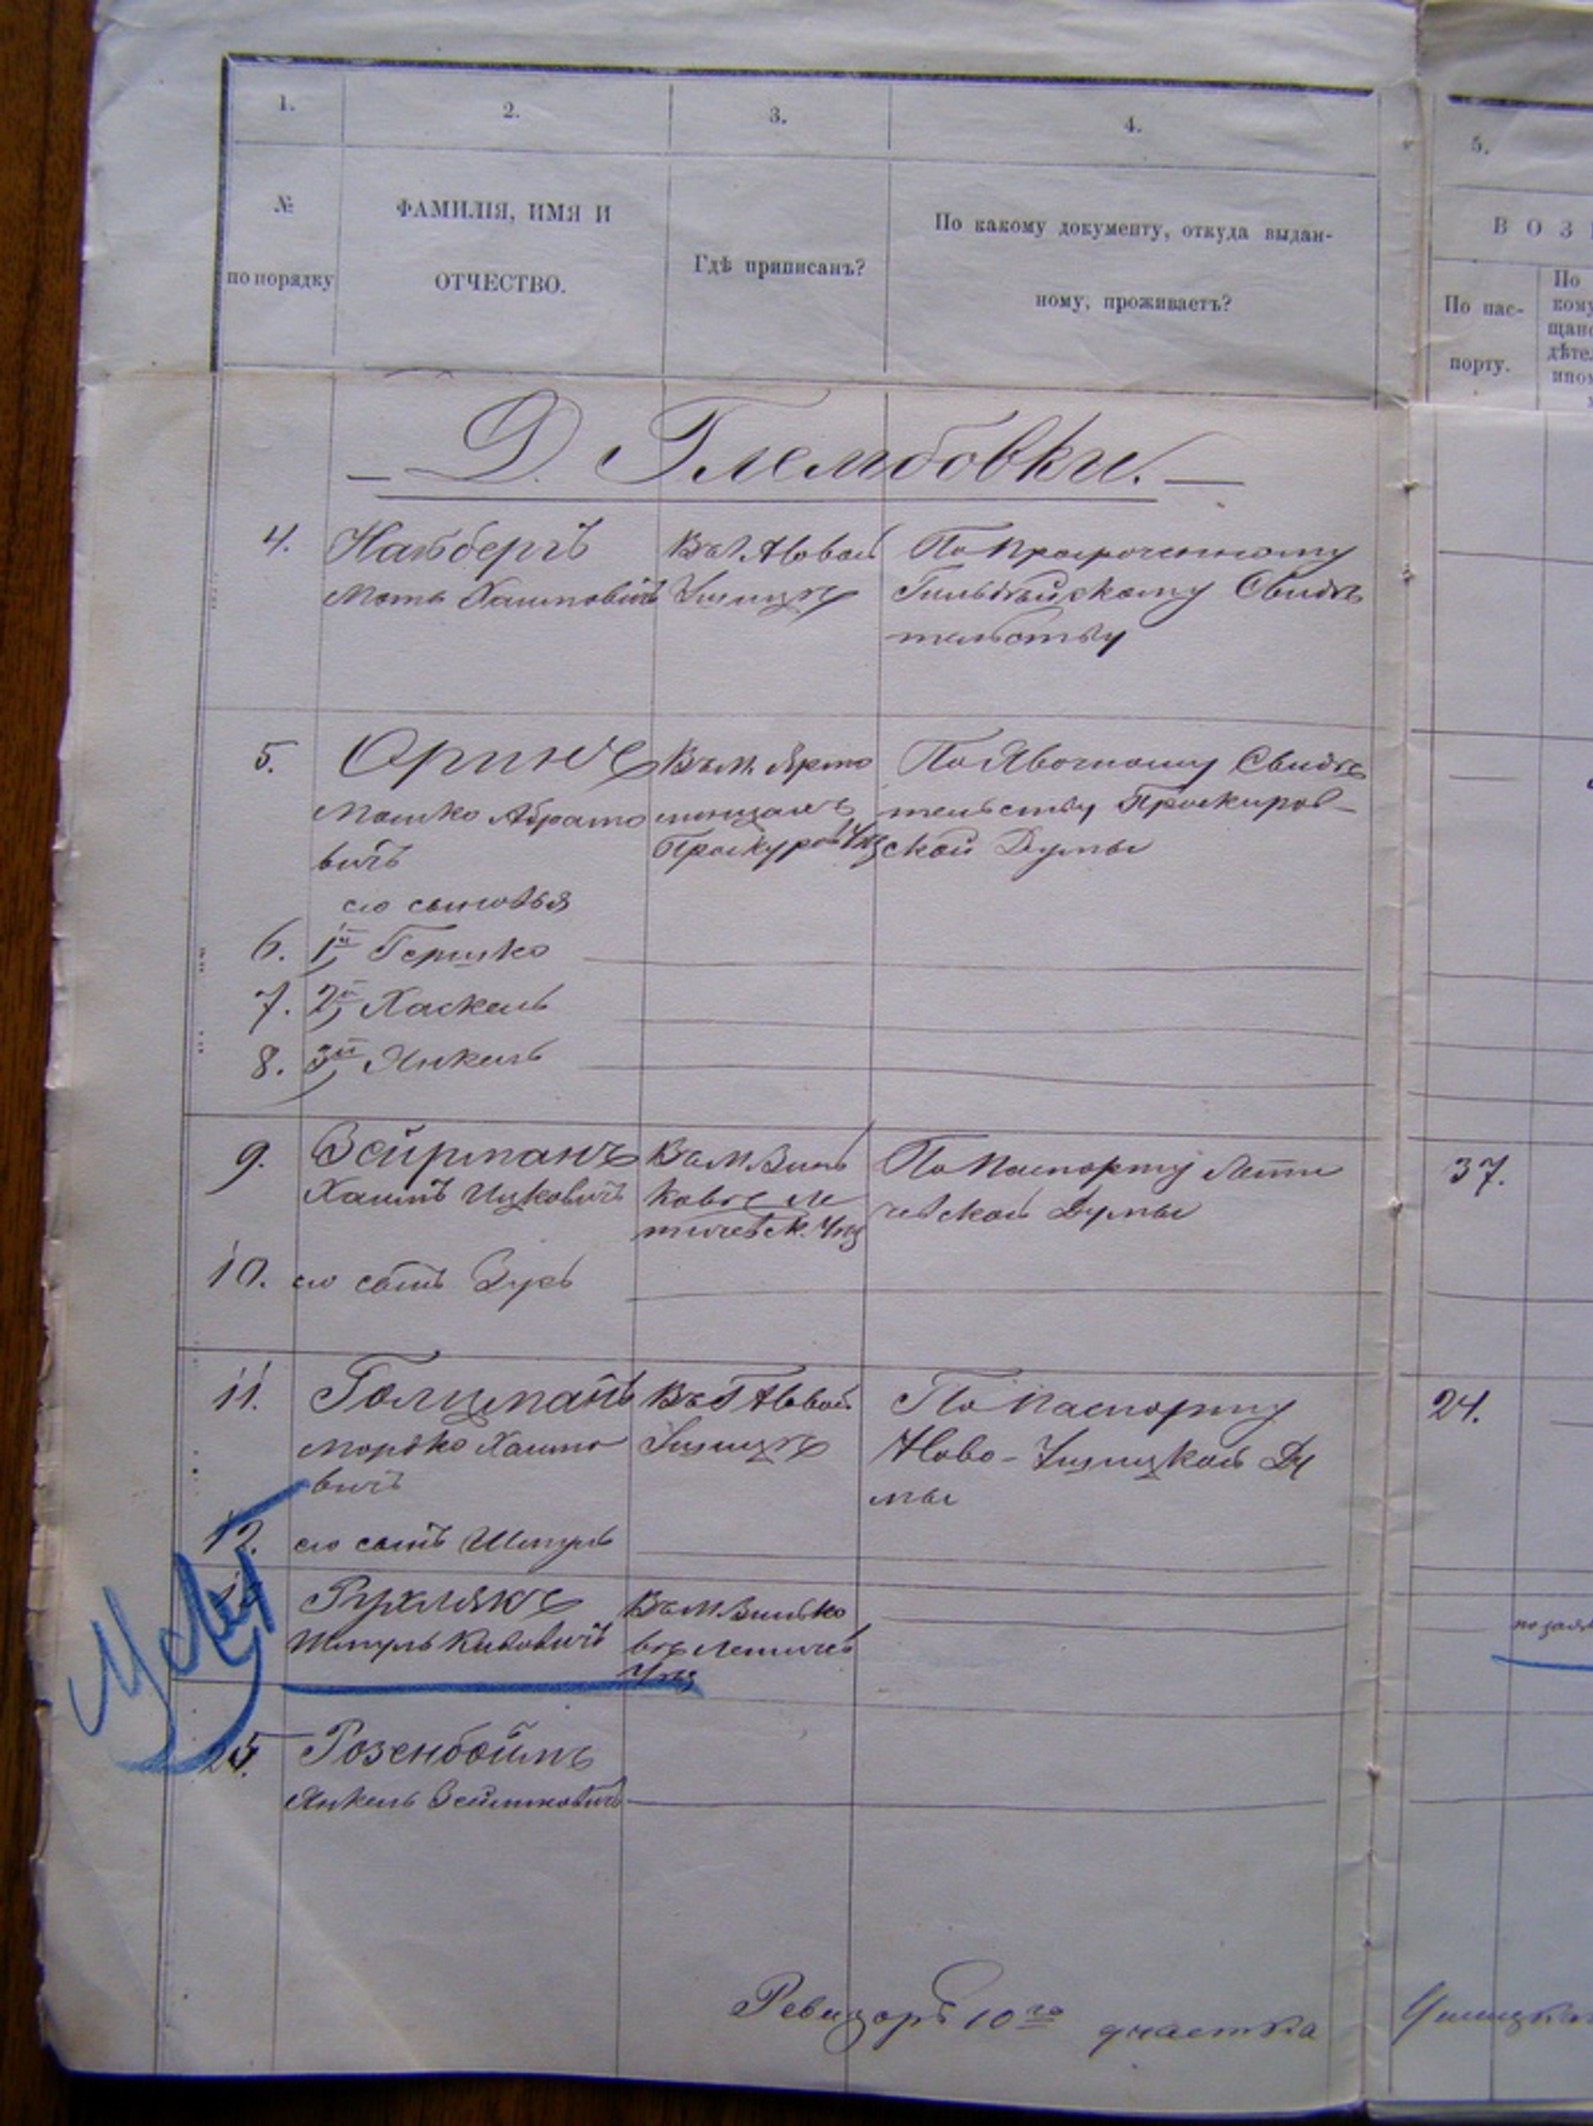 1.
2.
3.
4.
5.
№
по порядку
ФАМИЛІЯ, ИМЯ И
ОТЧЕСТВО.
Гдѣ приписанъ?
По какому документу, откуда выдан-
ному, проживаетъ?
ВОЗ
По пас-
порту.
По
кому
щанс
дѣте
Д. Глембовки.
4.
Мать Хаимовичъ
Въ Г. Новой
Ушицѣ
По просроченному
Гильдейскому Свидѣ
тельству
5.
Оринъ
Мошко Абрамо
вичъ
Въ м. Ярмо
линцахъ
Проскуров Уѣз
По Явочному Свидѣ
тельству Проскиров-
ской Думы
его сыновья
6. 1й Гершко
7. 2й Хаскель
8. 3й Янкель
9.
Вейрманъ
Хаимъ Ицковичъ
Въ м. Винь
ковцѣ Ле
тичевск. Уѣз
По паспорту Лети
чевской Думы
37.
10. его сынъ Зусь
11.
Голцманъ
Мордко Хаимо
вичъ
Въ Г. Новой
Ушицѣ
По паспорту
Ново-Ушицкой Ду
мы
24.
12. его сынъ Шмуль
Рухлякъ
Шмуль Кивовичъ
Въ м. Винько
вцѣ Летичев
Уѣз
Розенбоймъ
Янкель Зейликовичъ
Ревизоръ 10го участка